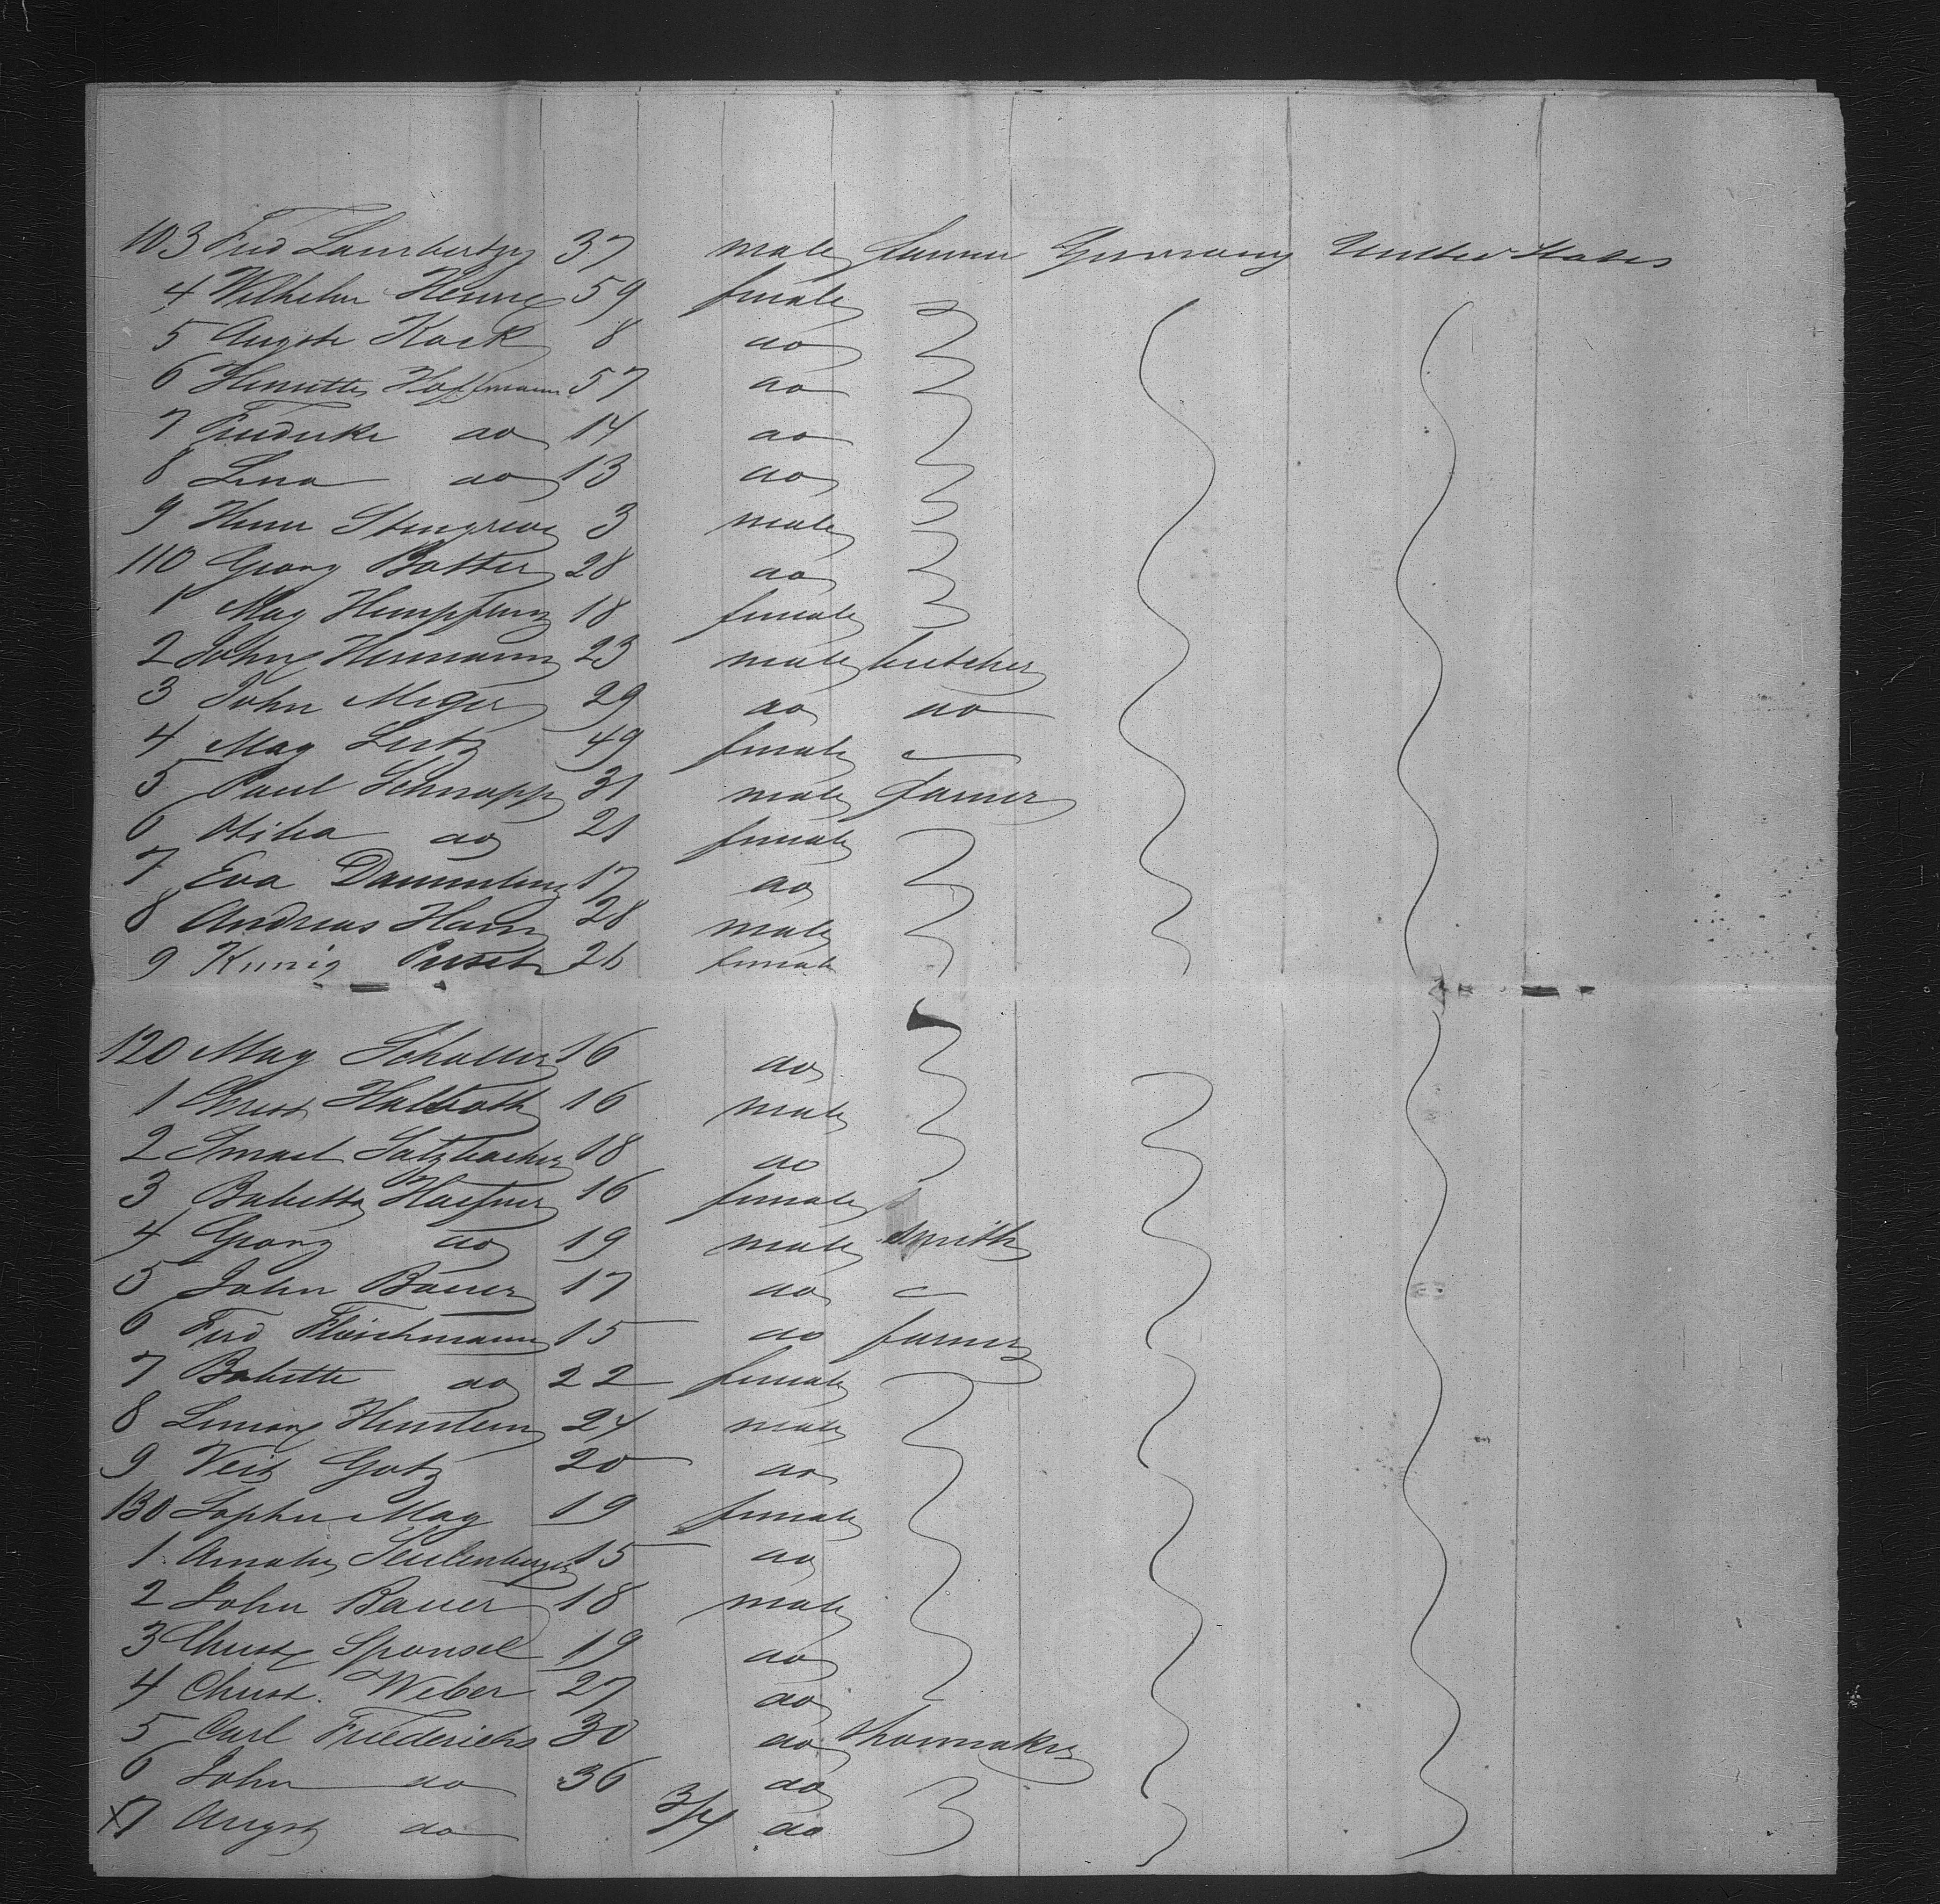 103 Fred Lambertzy 37 male farmer Germany United States
4 Wilhelm Henne 59 female
5 Auguste Kock 8 do
6 Henriette Hoffmann 57 do
7 Friederike do 14 do
8 Lina do 13 do
9 Henr 3 male
110 Georg Botter 28 do
1 Mag 18 female
2 John Hermann 23 male butcher
3 John Meyer 29 do do
4 Mag Lutz 49 female
5 Paul Schnapp 31 male farmer
6 do 21 female
7 Eva 17 do
8 Andreas Ham 28 male
9 Kunig 26 female
120 Mag Schaller 16 do
1 Christ 16 male
2 Salzbacher 18 do
3 Babetta Haefner 16 female
4 Georg do 19 male smith
5 John Bauer 17 do
6 Ferd Fleischmann 15 do farmer
7 Babette do 22 female
8 24 male
9 Veit Gotz 20 do
130 Sophie May 19 female
1 Amalie 15 do
2 John Bauer 18 male
3 Christ Sponsel 19 do
4 Christ. Weber 27 do
5 Carl Friederichs 30 do shoemaker
6 John do 36 do
x7 August do 3/4 do